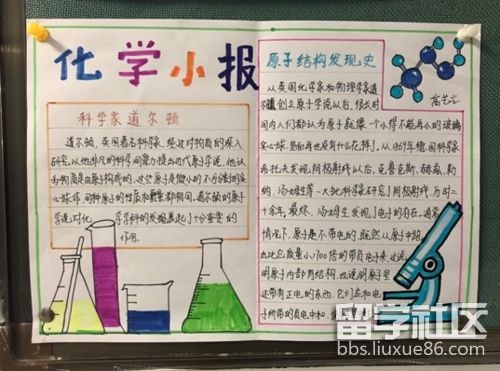 化学小报
科学家道尔顿
道尔顿，英国著名科学家，经过对物质的深入
研究，以他非凡的科学洞察力提出近代原子学说，他认
为物质是由原子构成的，这些原子是微小的不可分割的实
心球体，同种原子的性质和质量都相同，道尔顿的原子
学说对化学学科的发展起了十分重要的
作用。
原子结构发现史
从英国化学家和物理学家道
尔顿创立原子学说以后，很长时
间内人们都认为原子就像一个小得不能再小的玻璃
实心球，里面再也没有什么花样了。从1869年德国科学家
希托夫发现阴极射线以后，克鲁克斯、赫兹、勒
纳、汤姆生等一大批科学家研究了阴极射线，历时二
十余年，最终，汤姆生发现了电子的存在，通常
情况下，原子是不带电的，既然从原子中跑
出比它质量小1700倍的带负电子来，这说
明原子内部有结构，也说明原子里
还带有正电的东西，它们应和电
子所带的负电中和，
留学社区
bbs.liuxue86.com